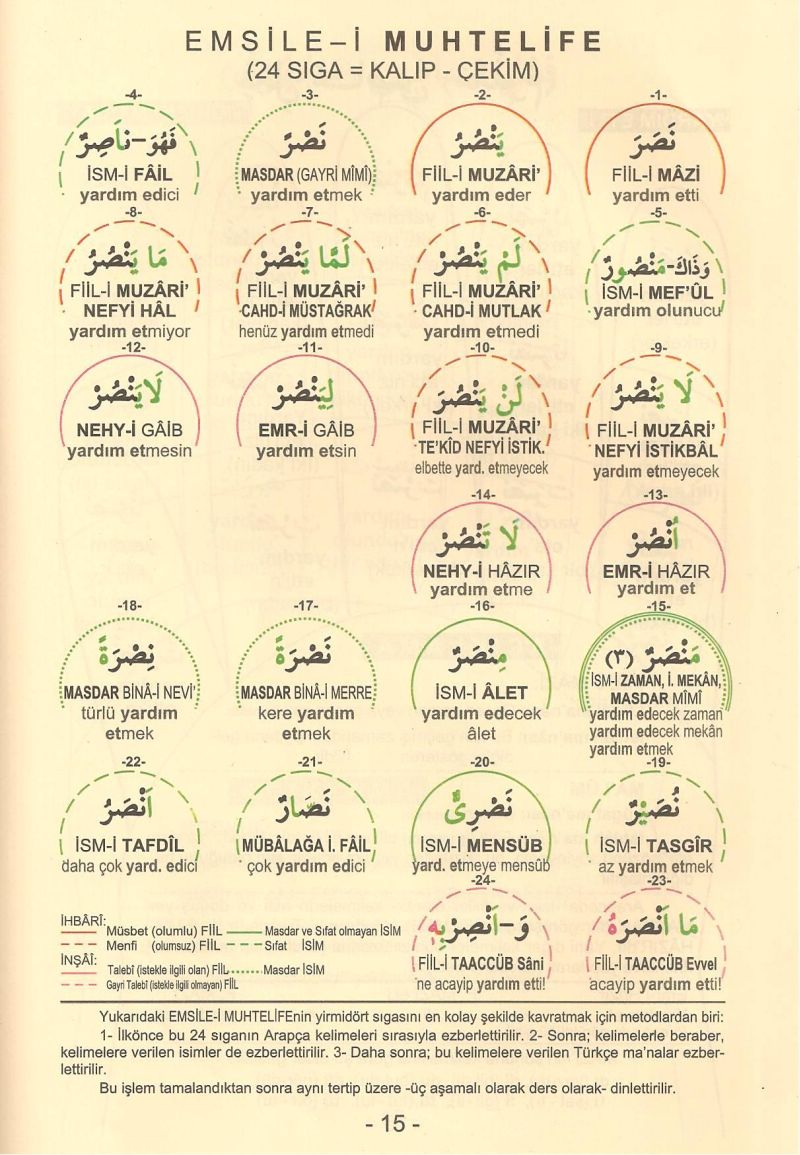 EMSİLE–İ MUHTELİFE
(24 SIGA = KALIP - ÇEKİM)
-1-
نَصَرَ
FİİL-İ MÂZİ
yardım etti
-2-
يَنْصُرُ
FİİL-İ MUZÂRİ’
yardım eder
-3-
نَصْرًا
MASDAR (GAYRİ MÎMÎ)
yardım etmek
-4-
فَهُوَ–نَاصِرٌ
İSM-İ FÂİL
yardım edici
-5-
وَذَاكَ–مَنْصُورٌ
İSM-İ MEF’ÛL
yardım olunucu
-6-
لَمْ يَنْصُرْ
FİİL-İ MUZÂRİ’
CAHD-İ MUTLAK
yardım etmedi
-7-
لَمَّا يَنْصُرْ
FİİL-İ MUZÂRİ’
CAHD-İ MÜSTAĞRAK
henüz yardım etmedi
-8-
مَا يَنْصُرُ
FİİL-İ MUZÂRİ’
NEFYİ HÂL
yardım etmiyor
-9-
لَا يَنْصُرُ
FİİL-İ MUZÂRİ’
NEFYİ İSTİKBÂL
yardım etmeyecek
-10-
لَنْ يَنْصُرَ
FİİL-İ MUZÂRİ’
TE’KÎD NEFYİ İSTİK.
elbette yard. etmeyecek
-11-
لِيَنْصُرْ
EMR-İ GÂİB
yardım etsin
-12-
لَايَنْصُرْ
NEHY-İ GÂİB
yardım etmesin
-13-
اُنْصُرْ
EMR-İ HÂZIR
yardım et
-14-
لَا تَنْصُرْ
NEHY-İ HÂZIR
yardım etme
-15-
مَنْصَرٌ (٣)
İSM-İ ZAMAN, İ. MEKÂN,
MASDAR MÎMÎ
yardım edecek zaman
yardım edecek mekân
yardım etmek
-16-
مِنْصَرٌ
İSM-İ ÂLET
yardım edecek
âlet
-17-
نَصْرَةً
MASDAR BİNÂ-İ MERRE
kere yardım
etmek
-18-
نِصْرَةً
MASDAR BİNÂ-İ NEVİ’
türlü yardım
etmek
-19-
نُصَيْرٌ
İSM-İ TASGÎR
az yardım etmek
-20-
نَصْرِىٌّ
İSM-İ MENSÜB
yard. etmeye mensûb
-21-
نَصَّارٌ
MÜBÂLAĞA İ. FÂİL
çok yardım edici
-22-
اَنْصَرُ
İSM-İ TAFDÎL
daha çok yard. edici
-23-
مَا اَنْصَرَهُ
FİİL-İ TAACCÜB Evvel
acayip yardım etti!
-24-
وَ–اَنْصِرْبِهِ
FİİL-İ TAACCÜB Sâni
ne acayip yardım etti!
İHBÂRÎ:
Müsbet (olumlu) FİİL Masdar ve Sıfat olmayan İSİM
Menfi (olumsuz) FİİL Sıfat İSİM
İNŞÂÎ:
Talebî (istekle ilgili olan) FİİL Masdar İSİM
Gayri Talebî (istekle ilgili olmayan) FİİL
Yukarıdaki EMSİLE-İ MUHTELİFEnin yirmidört sıgasını en kolay şekilde kavratmak için metodlardan biri:
1- İlkönce bu 24 sıganın Arapça kelimeleri sırasıyla ezberlettirilir. 2- Sonra; kelimelerle beraber,
kelimelere verilen isimler de ezberlettirilir. 3- Daha sonra; bu kelimelere verilen Türkçe ma’nalar ezber-
lettirilir.
Bu işlem tamalandıktan sonra aynı tertip üzere -üç aşamalı olarak ders olarak- dinlettirilir.
- 15 -